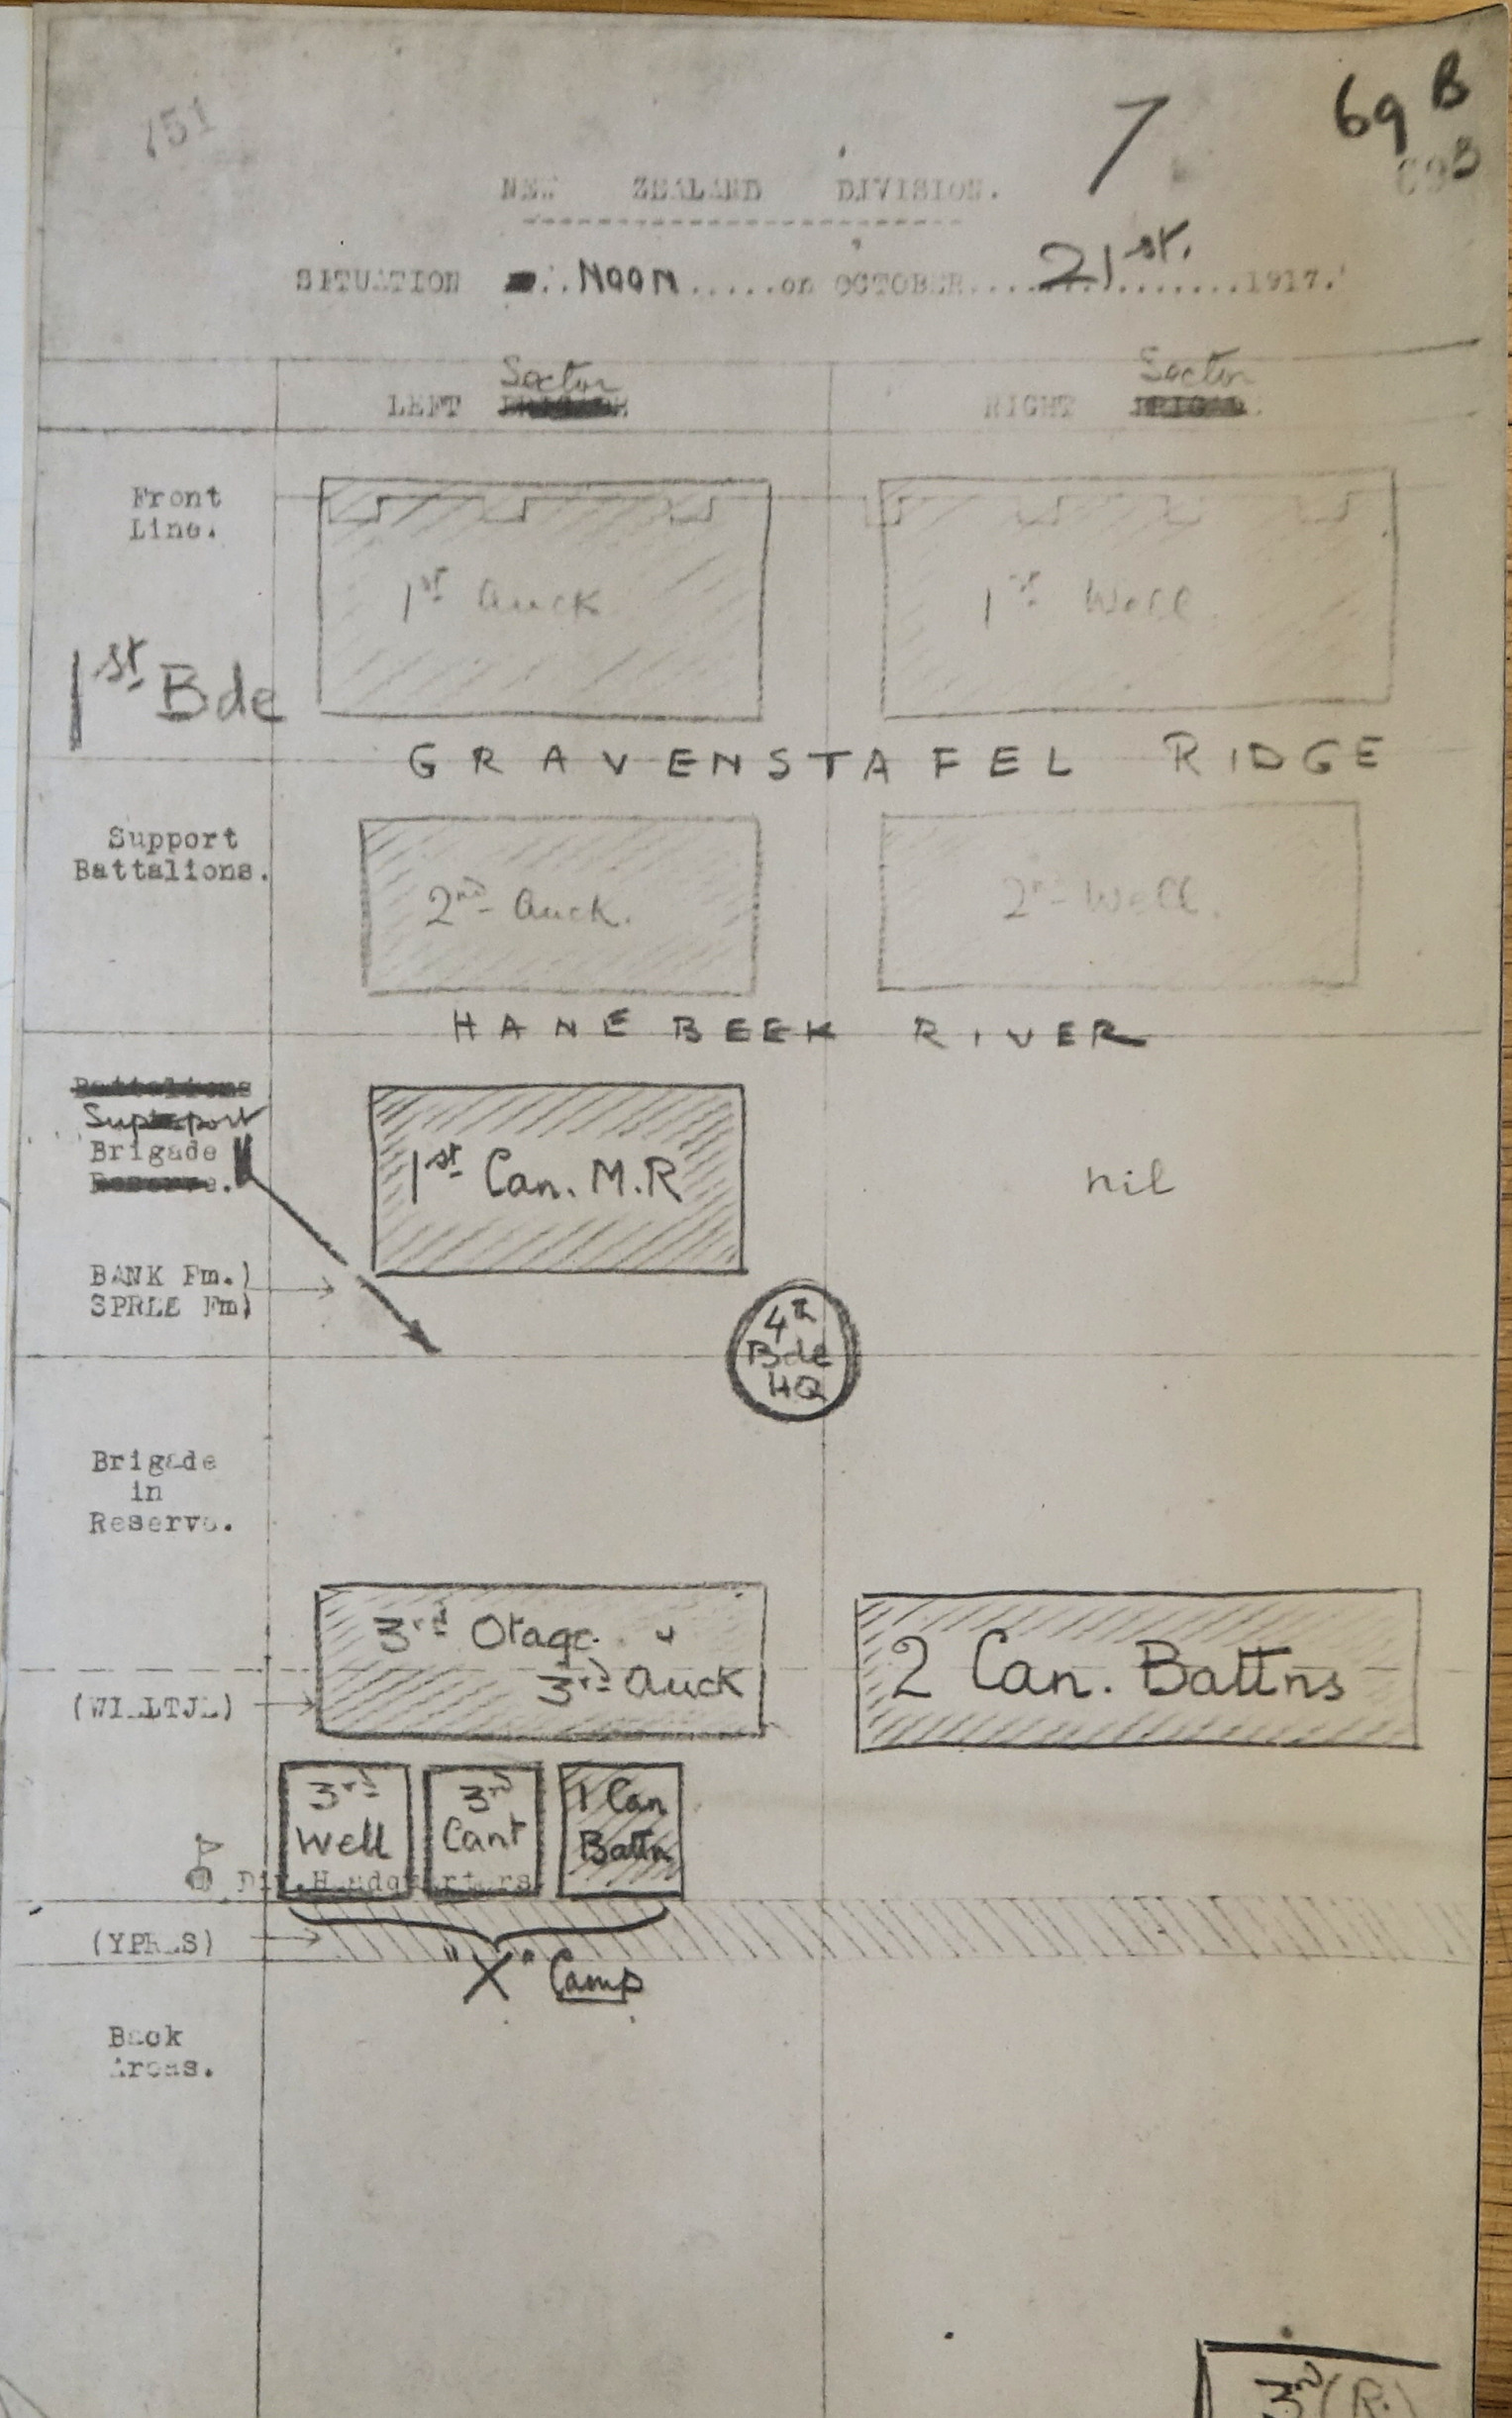 151
7
69 B
69B
NEW ZEALAND DIVISION.
SITUATION ..Noon.....on OCTOBER....21st.........1917.
LEFT Sector
RIGHT Sector
Front
Line.
1st Auck
1st Well.
1st Bde
GRAVENSTAFEL RIDGE
Support
Battalions.
2nd Auck.
2nd Well.
HANEBEEK RIVER
Battalions
Support
Brigade
Reserve.
1st Can. M.R
nil
BANK Fm.)
SPREE Fm)
4th
Bde
HQ
Brigade
in
Reserve.
3rd Otago. &
3rd Auck
2 Can. Battns
(WIELTJE)
3rd
Well
3rd
Cant
1 Can
Battn
Div. Headquarters
(YPRES)
"X" Camp
Back
Areas.
3rd (R.)